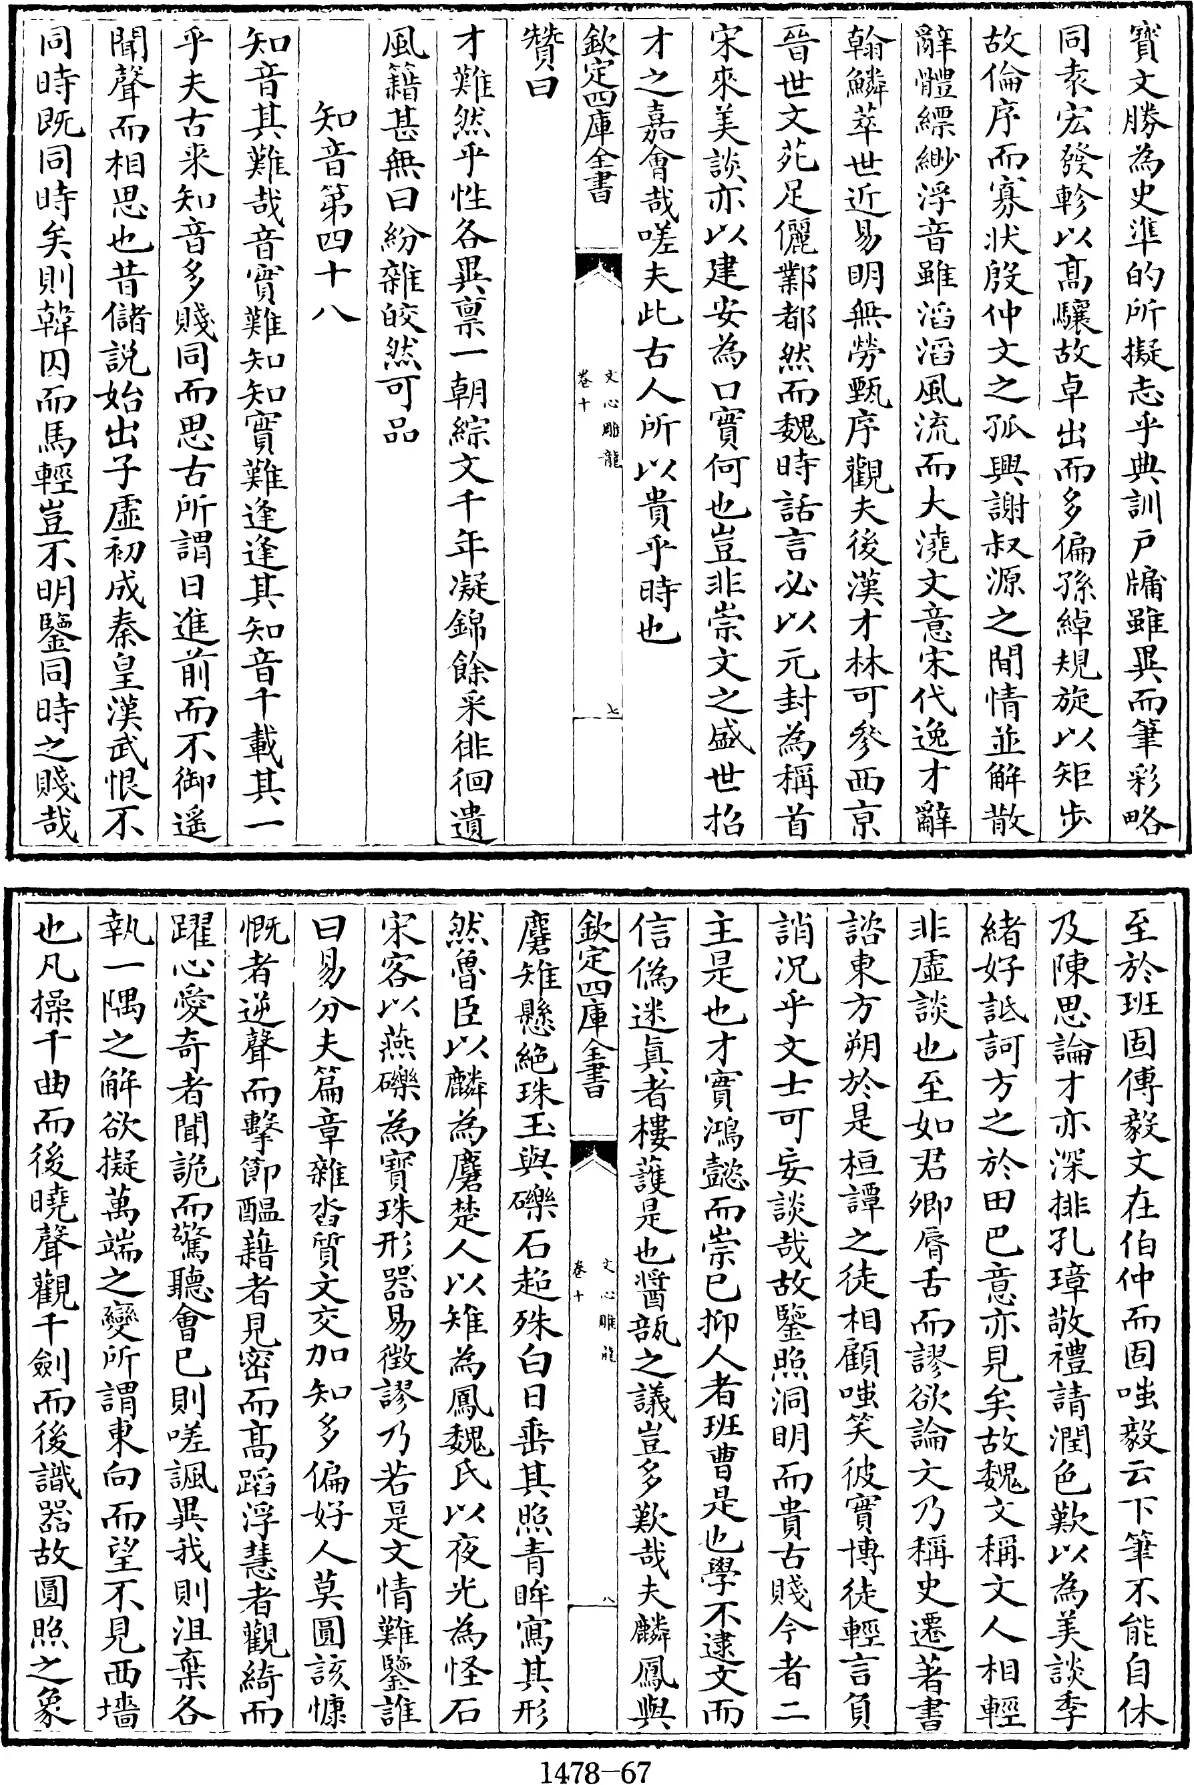 寳文勝為史準的所擬志乎典訓户牖雖異而筆彩略
同袁宏發軫以髙驤故卓出而多偏孫綽規旋以矩步
故倫序而寡狀殷仲文之孤興謝叔源之閒情並解散
辭體縹緲浮音雖滔滔風流而大澆文意宋代逸才辭
翰鱗萃世近易明無勞甄序觀夫後漢才林可參西京
晉世文苑足儷鄴都然而魏時話言必以元封為稱首
宋來美談亦以建安為口實何也豈非崇文之盛世招
才之嘉會哉嗟夫此古人所以貴乎時也
欽定四庫全書
文心雕龍
卷十
七
贊曰
才難然乎性各異禀一朝綜文千年凝錦餘采徘徊遺
風籍甚無曰紛雜皎然可品
知音第四十八
知音其難哉音實難知知實難逢逢其知音千載其一
乎夫古来知音多賤同而思古所謂日進前而不御遥
聞聲而相思也昔儲説始出子虛初成秦皇漢武恨不
同時既同時矣則韓囚而馬輕豈不明鑒同時之賤哉
至於班固傅毅文在伯仲而固嗤毅云下筆不能自休
及陳思論才亦深排孔璋敬禮請潤色歎以為美談季
緒好詆訶方之於田巴意亦見矣故魏文稱文人相輕
非虛談也至如君卿脣舌而謬欲論文乃稱史遷著書
諮東方朔於是桓譚之徒相顧嗤笑彼實博徒輕言負
誚况乎文士可妄談哉故鑒照洞明而貴古賤今者二
主是也才實鴻懿而崇已抑人者班曹是也學不逮文而
信偽迷真者樓護是也醬瓿之議豈多歎哉夫麟鳳與
欽定四庫全書
文心雕龍
卷十
八
麏雉懸絶珠玉與礫石超殊白日垂其照青眸寫其形
然魯臣以麟為麏楚人以雉為鳳魏氏以夜光為怪石
宋客以燕礫為寳珠形器易徵謬乃若是文情難鑒誰
曰易分夫篇章雜沓質文交加知多偏好人莫圓該慷
慨者逆聲而擊節醖藉者見密而髙蹈浮慧者觀綺而
躍心愛奇者聞詭而驚聽會已則嗟諷異我則沮棄各
執一隅之解欲擬萬端之變所謂東向而望不見西墻
也凡操千曲而後曉聲觀千劍而後識器故圓照之象
1478—67